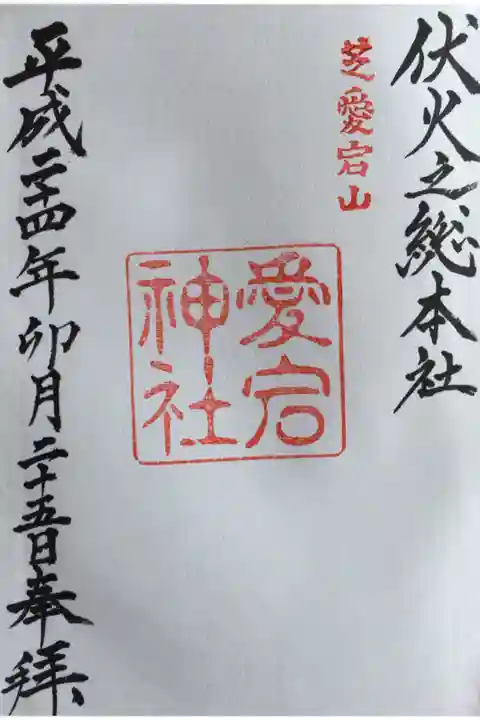 伏火之総本社
芝愛宕山
愛宕
神社
平成二十四年卯月二十五日奉拝